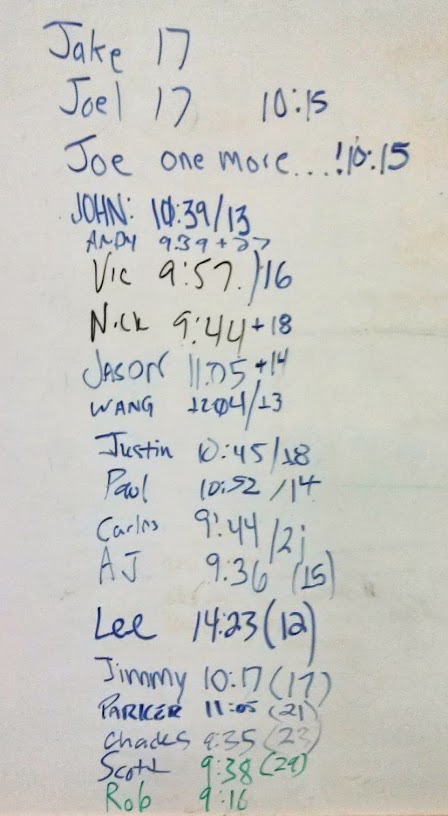 Jake 17
Joel 17 10:15
Joe one more...! 10:15
JOHN: 10:39/13
ANDY 9:39 + 27
Vic 9:57. /16
Nick 9:44 + 18
JASON 11:05 + 14
WANG 1204/13
Justin 10:45/18
Paul 10:52 /14
Carlos 9:44 /21
AJ 9:36 (15)
Lee 14:23 (12)
Jimmy 10:17 (17)
PARKER 11:05 (21)
Charles 9:35 (23)
Scott 9:38 (29)
Rob 9:16